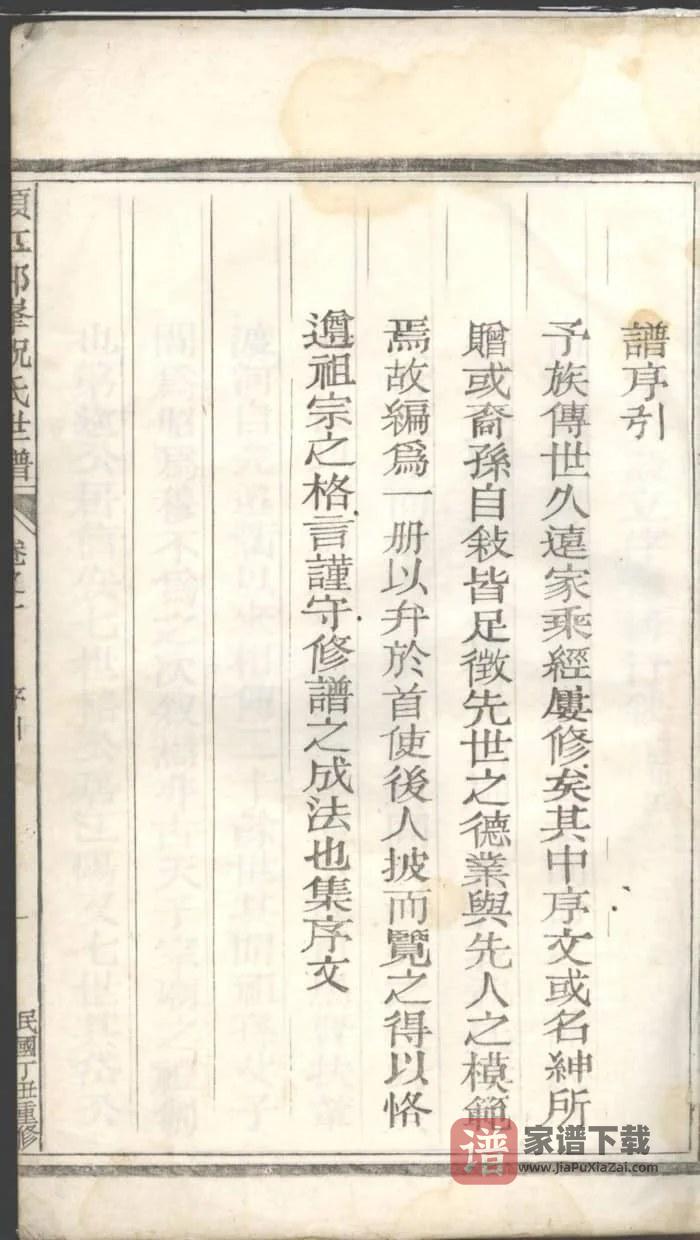 譜序引
予族傳世久遠家乘經屢修矣其中序文或名紳所
贈或裔孫自敍皆足徴先世之德業與先人之模範
焉故編爲一册以弁於首使後人披而覽之得以恪
遵祖宗之格言謹守修譜之成法也集序文
峯祝氏世譜
卷之
序引
一
民國丁丑重修
谱
家谱下载
www.JiaPuXiaZai.com